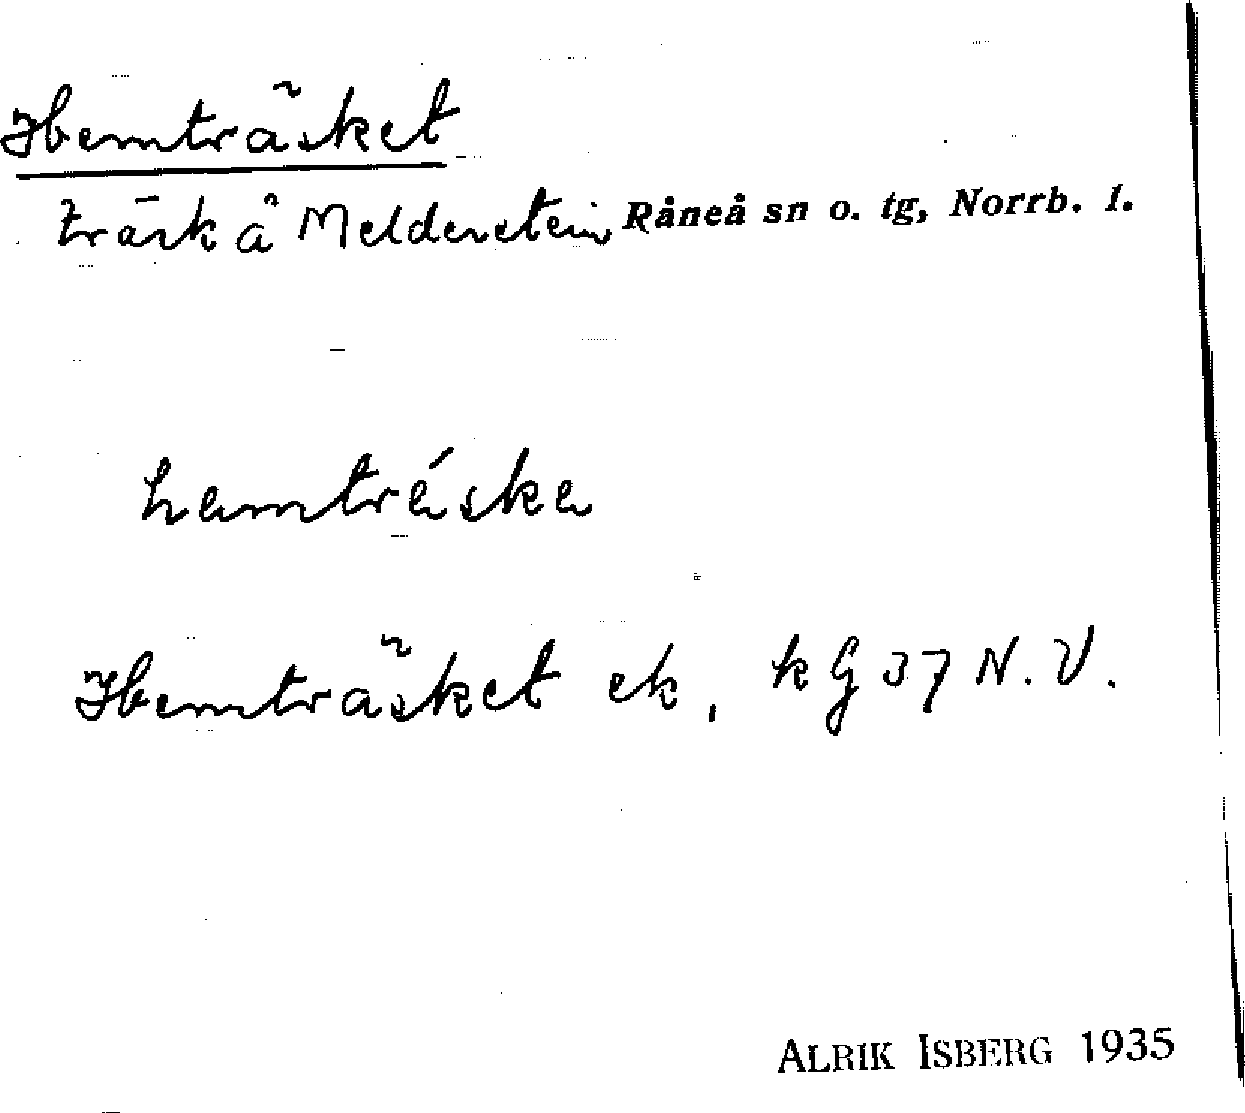 Hemträsket
träsk å Melderstein Råneå sn o. tg, Norrb. l.
hemtréska
Hemträsket ek, kG 37 N.V.
ALRIK ISBERG 1935